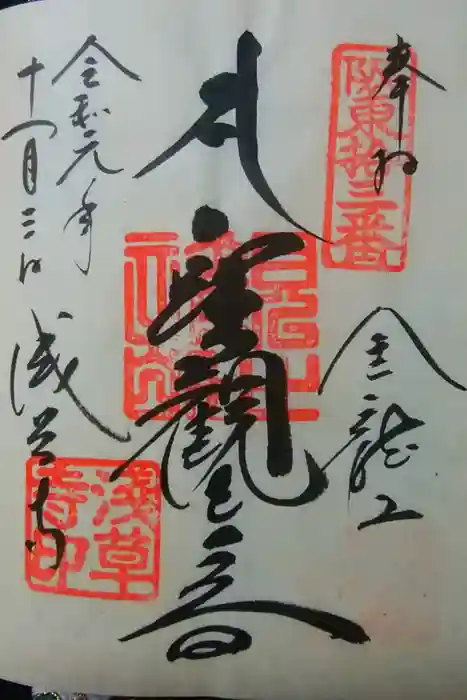 奉拝
関東拾三番
金龍山
聖観世音
令和元年
十一月三日
浅草寺
浅草寺印